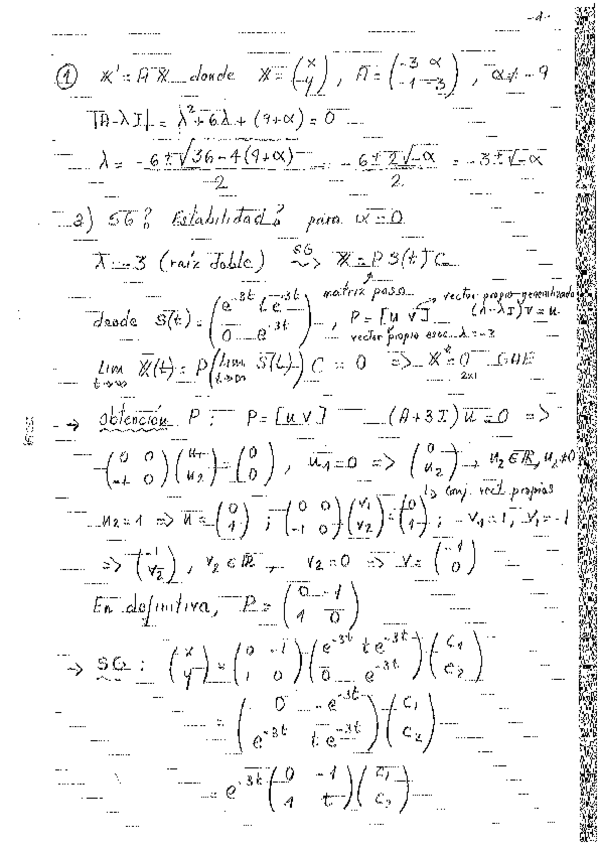 -1-
① X' = A X donde X = (x y), A = (-3 α -1 -3), α ≠ -9
|A-λI| = λ² + 6λ + (9+α) = 0
λ = (-6 ± √(36-4(9+α)))/2 = (-6 ± 2√-α)/2 = -3 ± √-α
a) SG? Estabilidad? para α=0
λ = -3 (raíz doble) SG ⇝ X = P S(t) C
matriz paso
donde S(t) = (e^-3t t e^-3t 0 e^-3t), P = [u v] → vector propio generalizado (A-λI)v = u
vector propio asoc. λ = -3
lim t→∞ X(t) = P (lim t→∞ S(t)) C = 0 => X* = 0 2x1 GAE
→ Obtención P: P = [u v] (A+3I) u = 0 =>
(0 0 -1 0)(u1 u2) = (0 0), u1 = 0 => (0 u2), u2 ∈ R, u2 ≠ 0
↳ conj. vect. propios
u2 = 1 => u = (0 1); (0 0 -1 0)(v1 v2) = (0 1); -v1 = 1, v1 = -1
=> (-1 v2), v2 ∈ R, v2 = 0 => v = (-1 0)
En definitiva, P = (0 -1 1 0)
→ SG: (x y) = (0 -1 1 0)(e^-3t t e^-3t 0 e^-3t)(c1 c2)
= (0 -e^-3t e^-3t t e^-3t)(c1 c2)
= e^-3t (0 -1 1 t)(c1 c2)